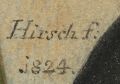 Hirsch f:
1824.